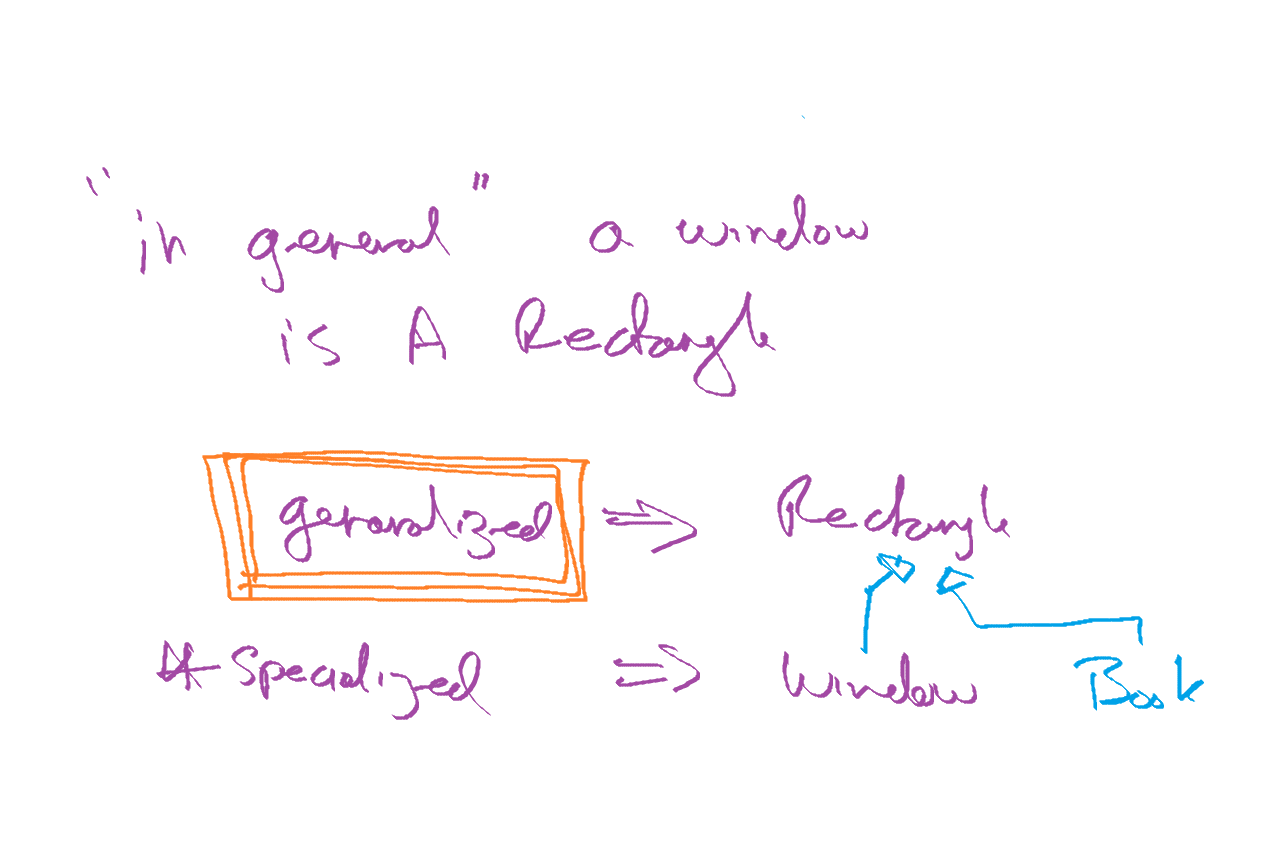 "in general" a window
is A Rectangle
generalized ⇒ Rectangle
* Specialized ⇒ Window Book